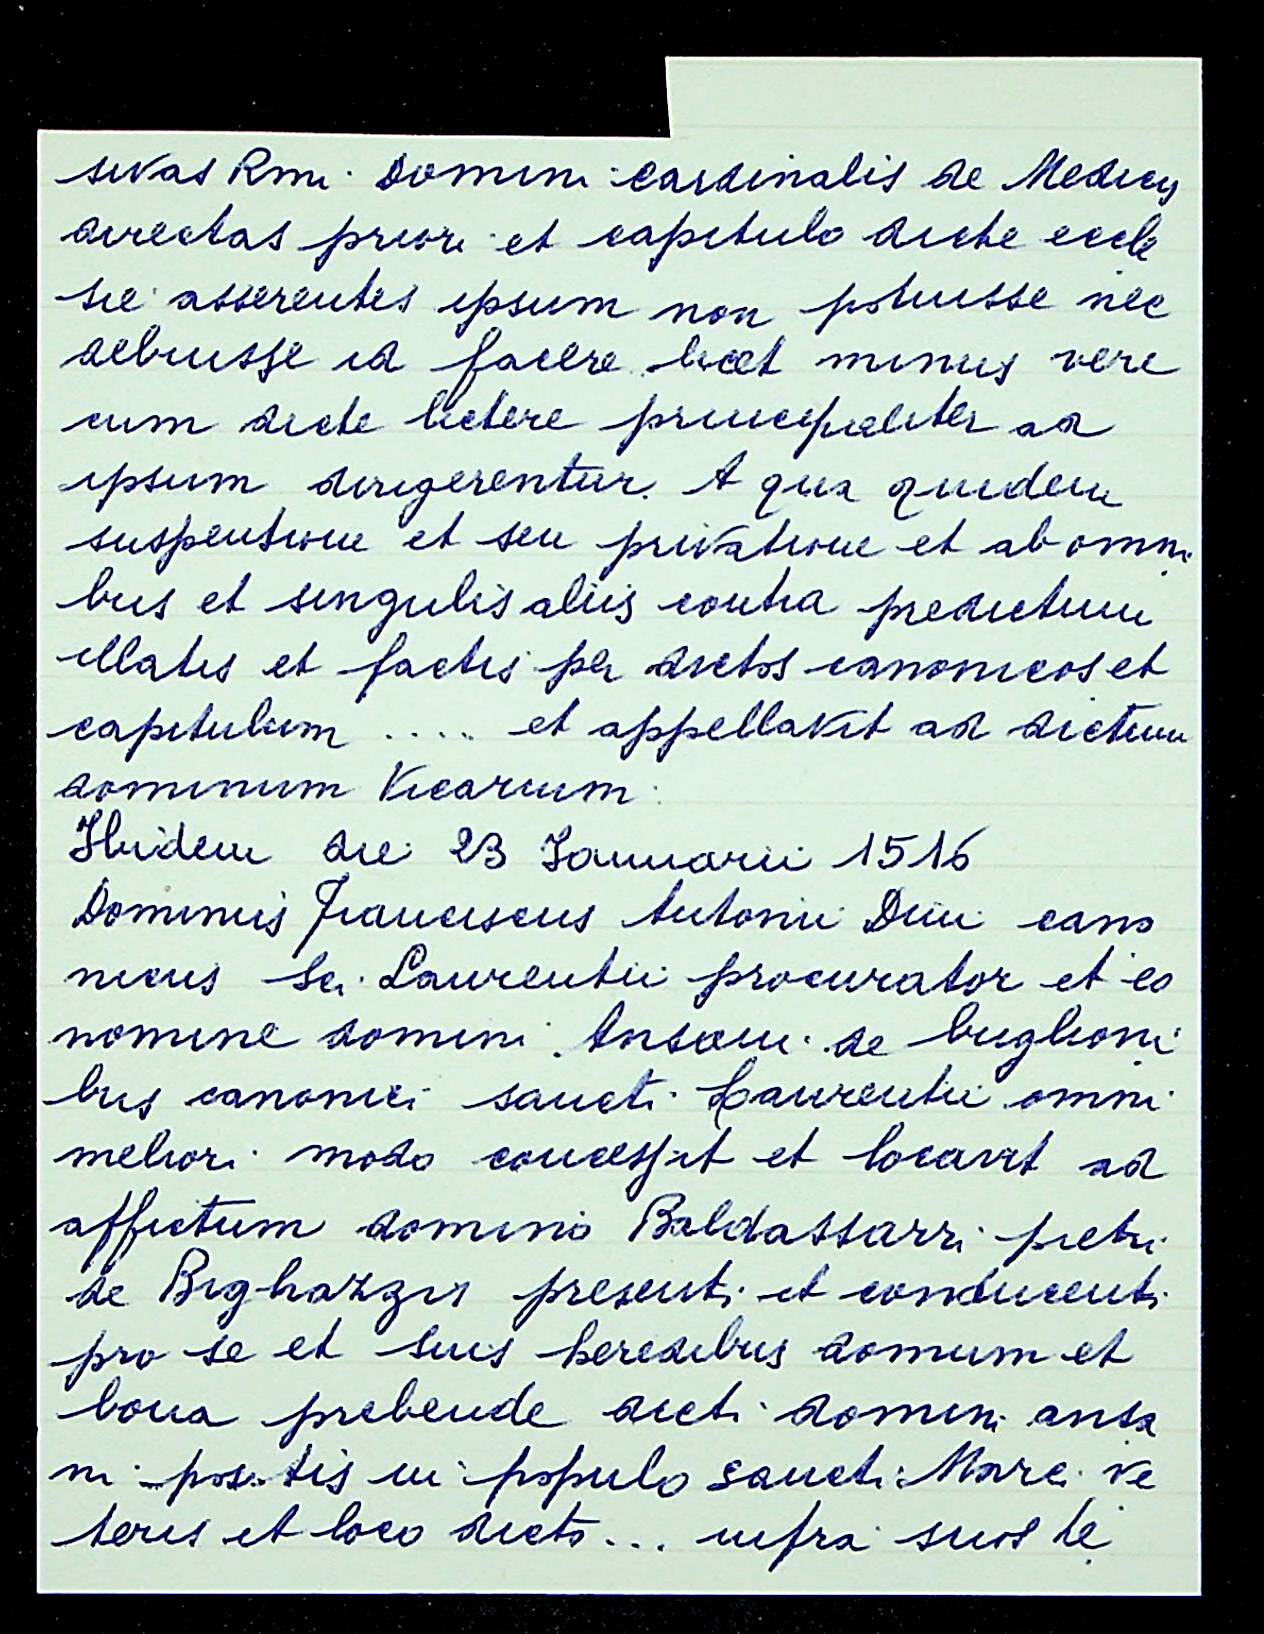 sivas Rmi Domini cardinalis de Medicys
directas priori et capitulo dicte eccle
sie asserentes ipsum non potuisse nec
debuisse id facere licet minus vere
cum dicte lictere principaliter ad
ipsum dirigerentur. A qua quidem
suspentione et seu privatione et ab omni
bus et singulis aliis contra predictum
illatis et factis per dictos canonicos et
capitulum .... et appellavit ad dictum
dominum Vicarium.
Ibidem die 23 Januarii 1516
Dominus Franciscus Antonii Dini cano
nicus Sci. Laurentii procurator et eo
nomine domini de buglioni
bus canonici sancti Laurentii omni
meliori modo concessit et locavit ad
affictum domino Baldassarri pietri
de Bighazzis presenti et conducenti
pro se et suis heredibus domum et
bona prebende dicti domini ansa
ni positis in populo sancti Marci ve
teris et loco dicto ... infra suos te